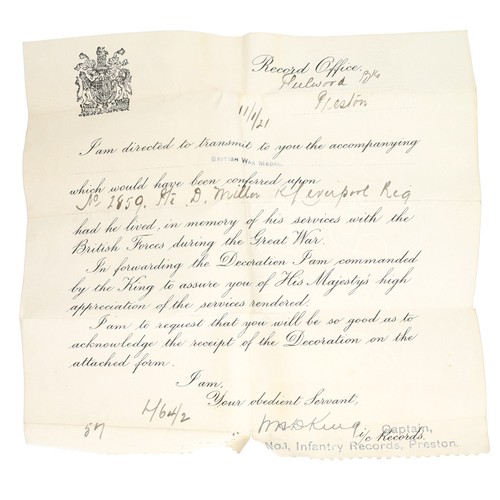 Record Office,
Fulwood Bks
Preston
11/1/21
I am directed to transmit to you the accompanying
BRITISH WAR MEDAL
which would have been conferred upon
No 2850. Pte D. Miller K/Liverpool Reg
had he lived, in memory of his services with the
British Forces during the Great War.
In forwarding the Decoration I am commanded
by the King to assure you of His Majesty's high
appreciation of the services rendered.
I am to request that you will be so good as to
acknowledge the receipt of the Decoration on the
attached form.
I am,
Your obedient Servant,
King
Captain,
i/c Records.
No.1, Infantry Records, Preston.
57